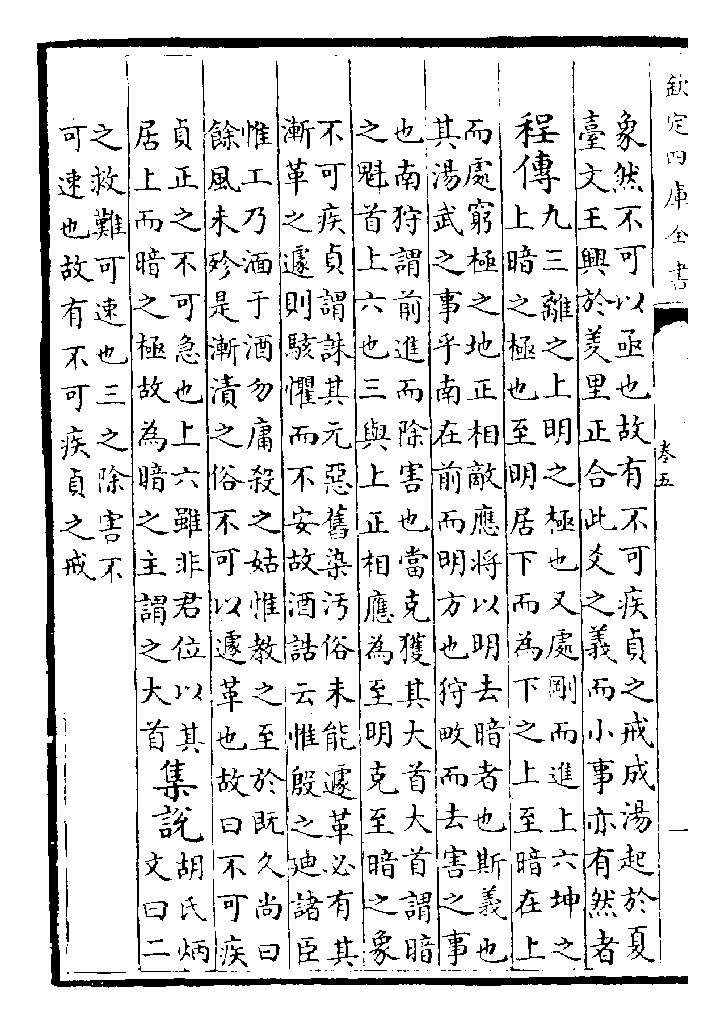 欽定四庫全書
卷五
象然不可以亟也故有不可疾貞之戒成湯起於夏
臺文王興於羑里正合此爻之義而小事亦有然者
程傳九三離之上明之極也又處剛而進上六坤之
上暗之極也至明居下而為下之上至暗在上
而處窮極之地正相敵應將以明去暗者也斯義也
其湯武之事乎南在前而明方也狩畋而去害之事
也南狩謂前進而除害也當克獲其大首大首謂暗
之魁首上六也三與上正相應為至明克至暗之象
不可疾貞謂誅其元惡舊染汚俗未能遽革必有其
漸革之遽則駭懼而不安故酒誥云惟殷之迪諸臣
惟工乃湎于酒勿庸殺之姑惟教之至於既久尚曰
餘風未殄是漸漬之俗不可以遽革也故曰不可疾
貞正之不可急也上六雖非君位以其
居上而暗之極故為暗之主謂之大首
集說胡氏炳
文曰二
之救難可速也三之除害不
可速也故有不可疾貞之戒